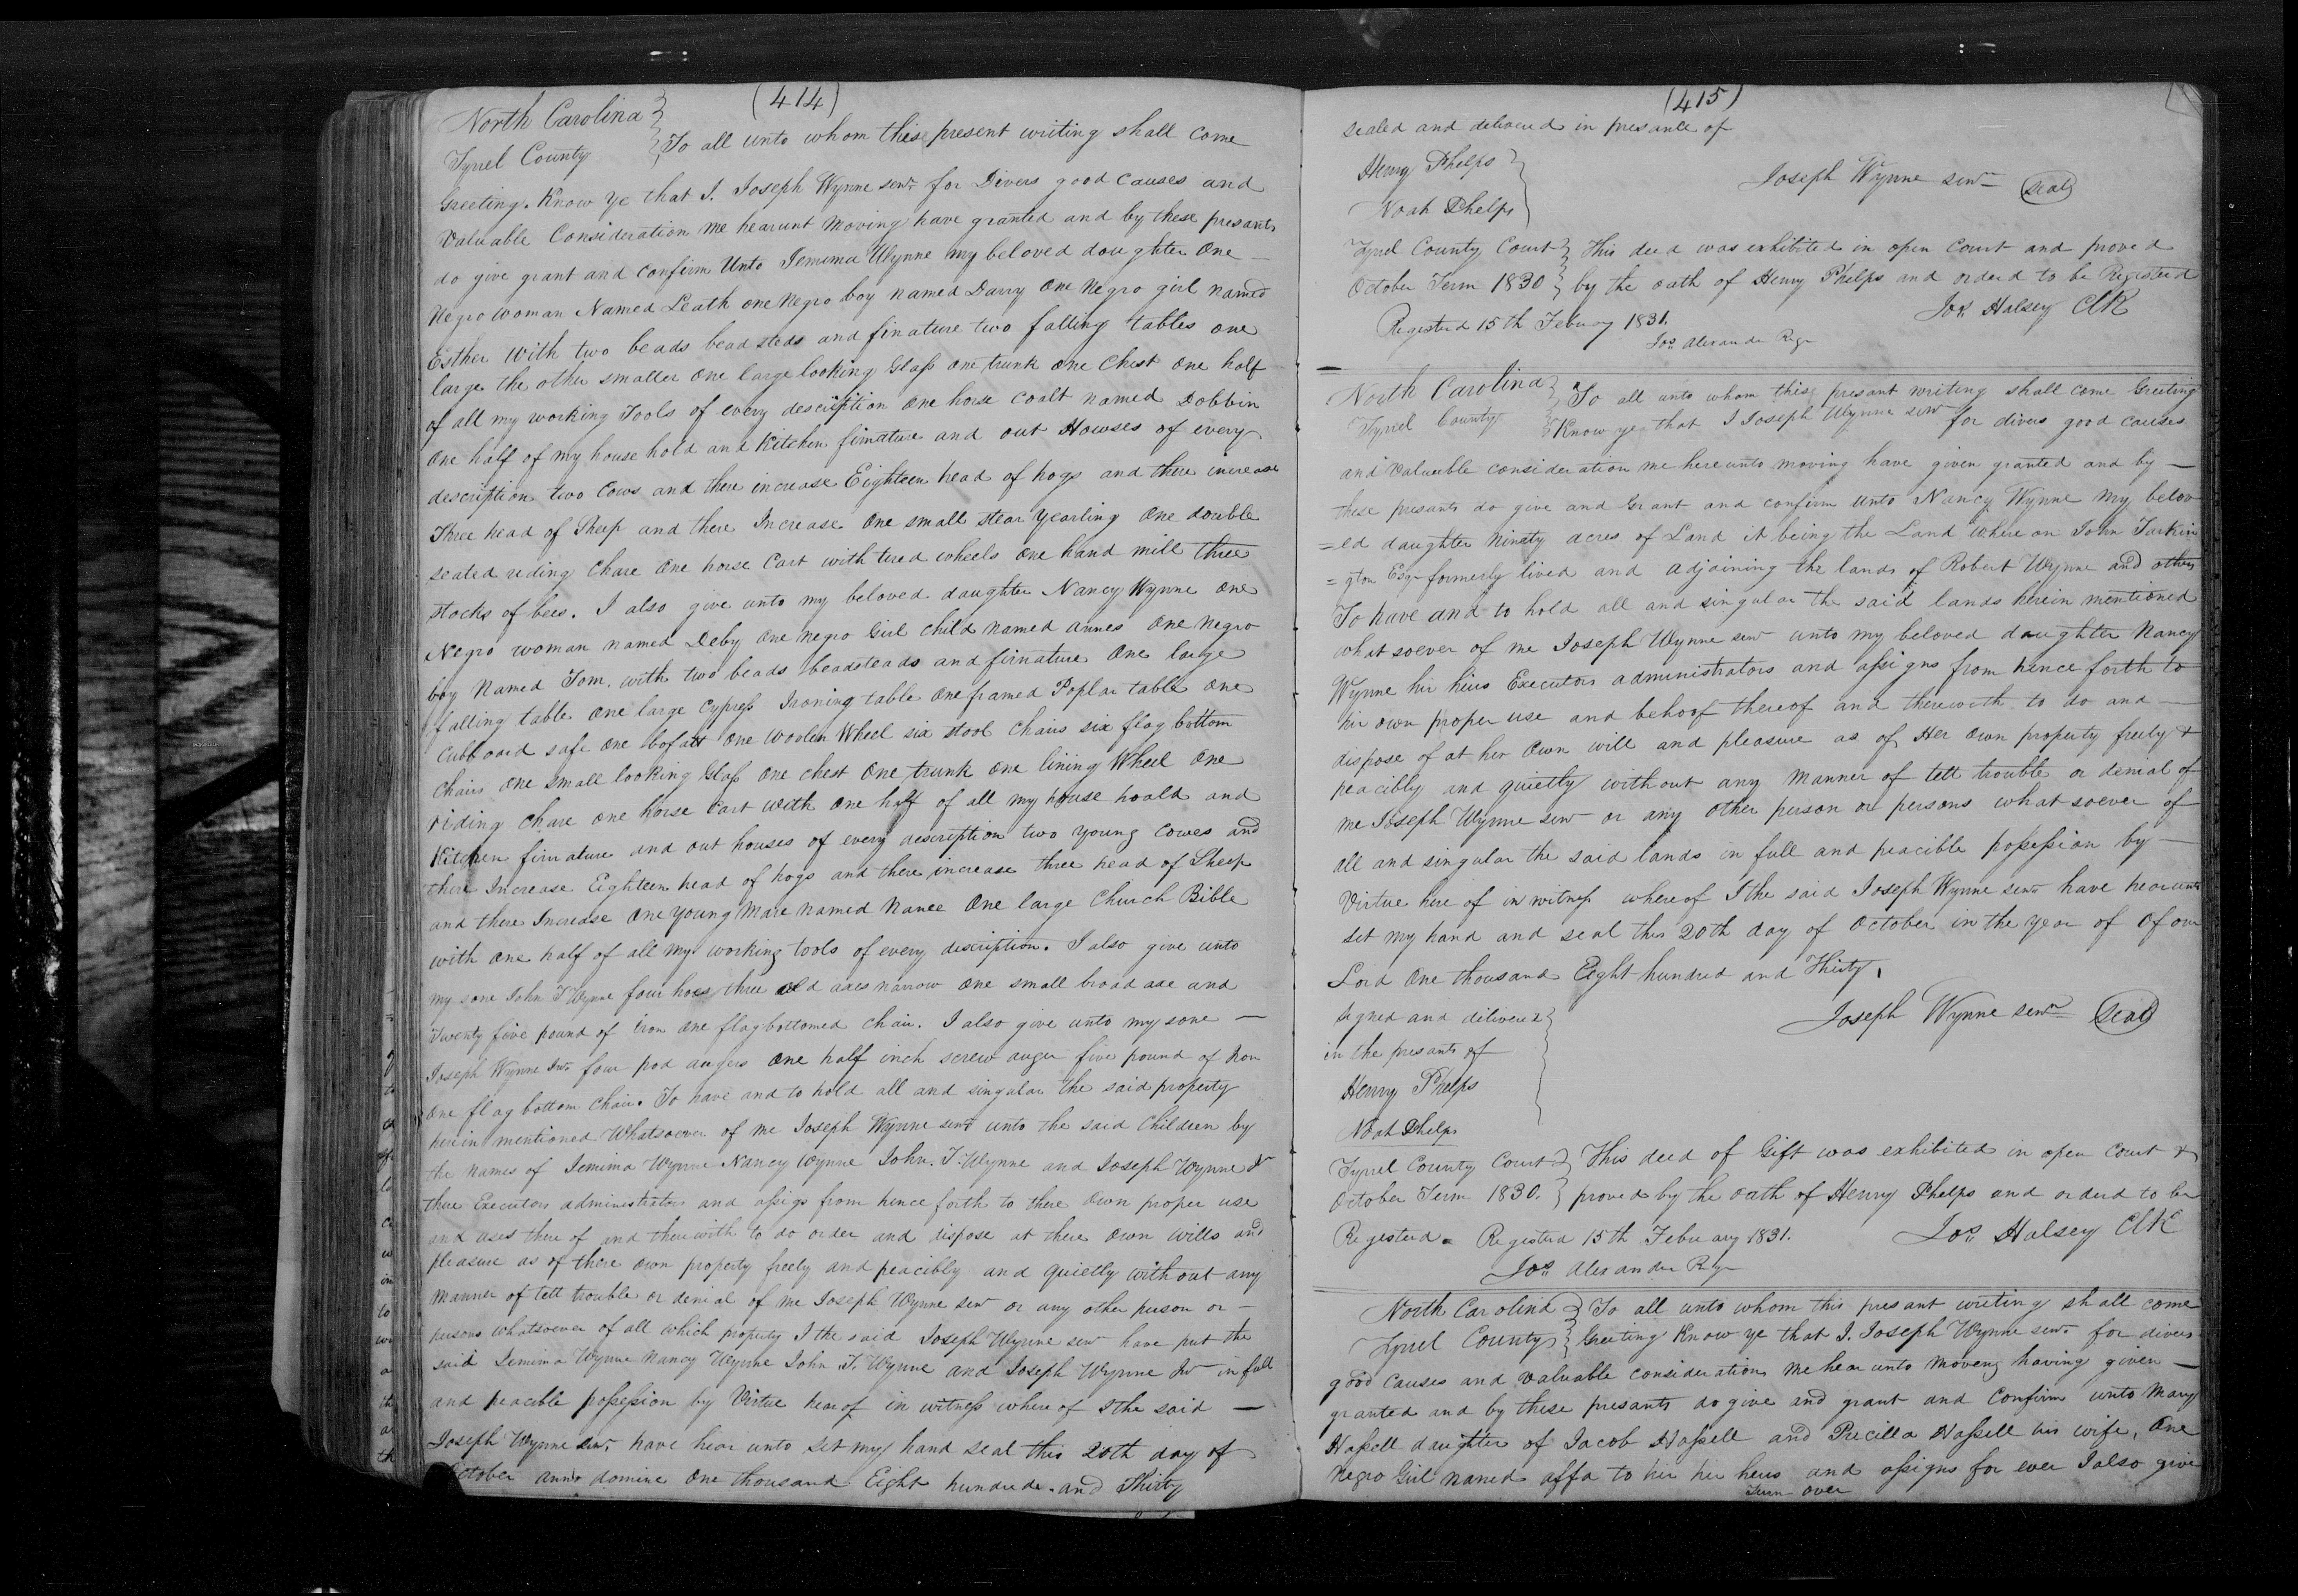 (414)
North Carolina
Tyrrel County
To all unto whom these present writing shall come
Greeting. Know Ye that I. Joseph Wynne senr for Divers good Causes and
Valuable Consideration me hearunt moving have granted and by these presants
do give grant and confirm Unto Jemima Wynne my beloved daughter One
Negro woman Named Leath one Negro boy named Darry One Negro girl named
Esther With two beads beadsteds and firnature two falling tables one
large the other smaller One large looking Glass one trunk one Chest One half
of all my working Tools of every description One horse Coalt named Dobbin
One half of my house hold and Kitchen firnature and out Howses of every
description two Cows and there increase Eighteen head of hogs and there increase
Three head of Sheep and there Increase One small stear Yearling One double
seated riding Chare One horse Cart with tired wheels One hand mill three
stocks of bees. I also give unto my beloved daughter Nancy Wynne One
Negro woman named Deby One negro Girl child named annes One negro
boy Named Tom. with two beads beadsteads and firnature One large
falling table One large Cypress Ironing table One framed Poplar table One
Cubboard safe One bofatt One woolen Wheel six stool Chairs six flag bottom
Chairs One small looking Glass One chest One trunk One lining Wheel One
riding chare one horse Cart with One half of all my house hoald and
Kitchen firnature and out houses of every description two young Cowes and
there Increase Eighteen head of hogs and there increase three head of Sheep
and there Increase One Young Mare named Nance One large Church Bible
with One half of all my working tools of every discription. I also give unto
my sone John T Wynne four hoes three old axes narrow One small broad axe and
Twenty five pound of Iron One flag bottomed Chair. I also give unto my sone —
Joseph Wynne Jur four pod augers One half inch screw auger five pound of Iron
One flag bottom Chair. To have and to hold all and singular the said property
herein mentioned Whatsoever of me Joseph Wynne senr unto the said Children by
the names of Jemima Wynne Nancy Wynne John. T. Wynne and Joseph Wynne Jr
there Executors administrators and assigs from hence forth to there Own proper use
and uses there of and therewith to do order and dispose at there Own wills and
pleasure as of there own property freely and peacibly and quietly without any
manner of lett trouble or denial of me Joseph Wynne senr or any other person or —
persons whatsoever of all which property I the said Joseph Wynne senr have put the
said Jemima Wynne Nancy Wynne John T. Wynne and Joseph Wynne Jur in full
and peacible possession by Virtue hearof in witness where of I the said —
Joseph Wynne senr. have hear unto set my hand seal this 20th day of
October anno domine One thousand Eight hundrede. and Thirty
(415)
sealed and delivered in presance of
Henry Phelps
Noah Phelps
Joseph Wynne senr seal
Tyrrel County Court
October Term 1830
This deed was exhibited in open Court and proved
by the oath of Henry Phelps and orderd to be Registerd
Jos. Halsey Clk
Registerd 15th Febuary 1831.
Jos. Alexander Regr
North Carolina
Tyrrel County
To all unto whom these presant writing shall come Greeting
Know ye that I Joseph Wynne senr for divers good causes
and valuable consideration me hereunto moving have given granted and by —
these presants do give and Grant and confirm unto Nancy Wynne my belov
=ed daughter Ninety acres of Land it being the Land where on John Tarkin
=gton Esqr formerly lived and adjoining the lands of Robert Wynne and others
To have and to hold all and singular the said lands herein mentioned
whatsoever of me Joseph Wynne senr unto my beloved daughter Nancy
Wynne hir heirs Executors administrators and assigns from hence forth to
hir own proper use and behoof thereof and therewith to do and —
dispose of at hir Own will and pleasure as of Her Own property freely &
peacibly and quietly without any manner of lett trouble or denial of
me Joseph Wynne senr or any other person or persons whatsoever of
all and singular the said lands in full and peacible possession by —
Virtue here of in witness whereof I the said Joseph Wynne senr have hearunto
set my hand and seal this 20th day of October in the year of Of our
Lord One thousand Eight hundred and Thirty.
signed and deliverd
in the presants of
Henry Phelps
Noah Phelps
Joseph Wynne senr Seal
Tyrrel County Court
October Term 1830.
This deed of Gift was exhibited in open Court &
proved by the oath of Henry Phelps and orderd to be
Registerd. Registerd 15th Febuary 1831. Jos. Halsey Clk
Jos. Alexander Regr
North Carolina
Tyrrel County
To all unto whom this presant writing shall come
Greeting Know ye that I. Joseph Wynne senr for divers
good causes and valuable consideration me hear unto moveng having given —
granted and by these presants do give and grant and Confirm unto Mary
Hassell daughter of Jacob Hassell and Precilla Hassell his wife, One
Negro Girl named affa to hir her heirs and assigns for ever I also give
Turn over